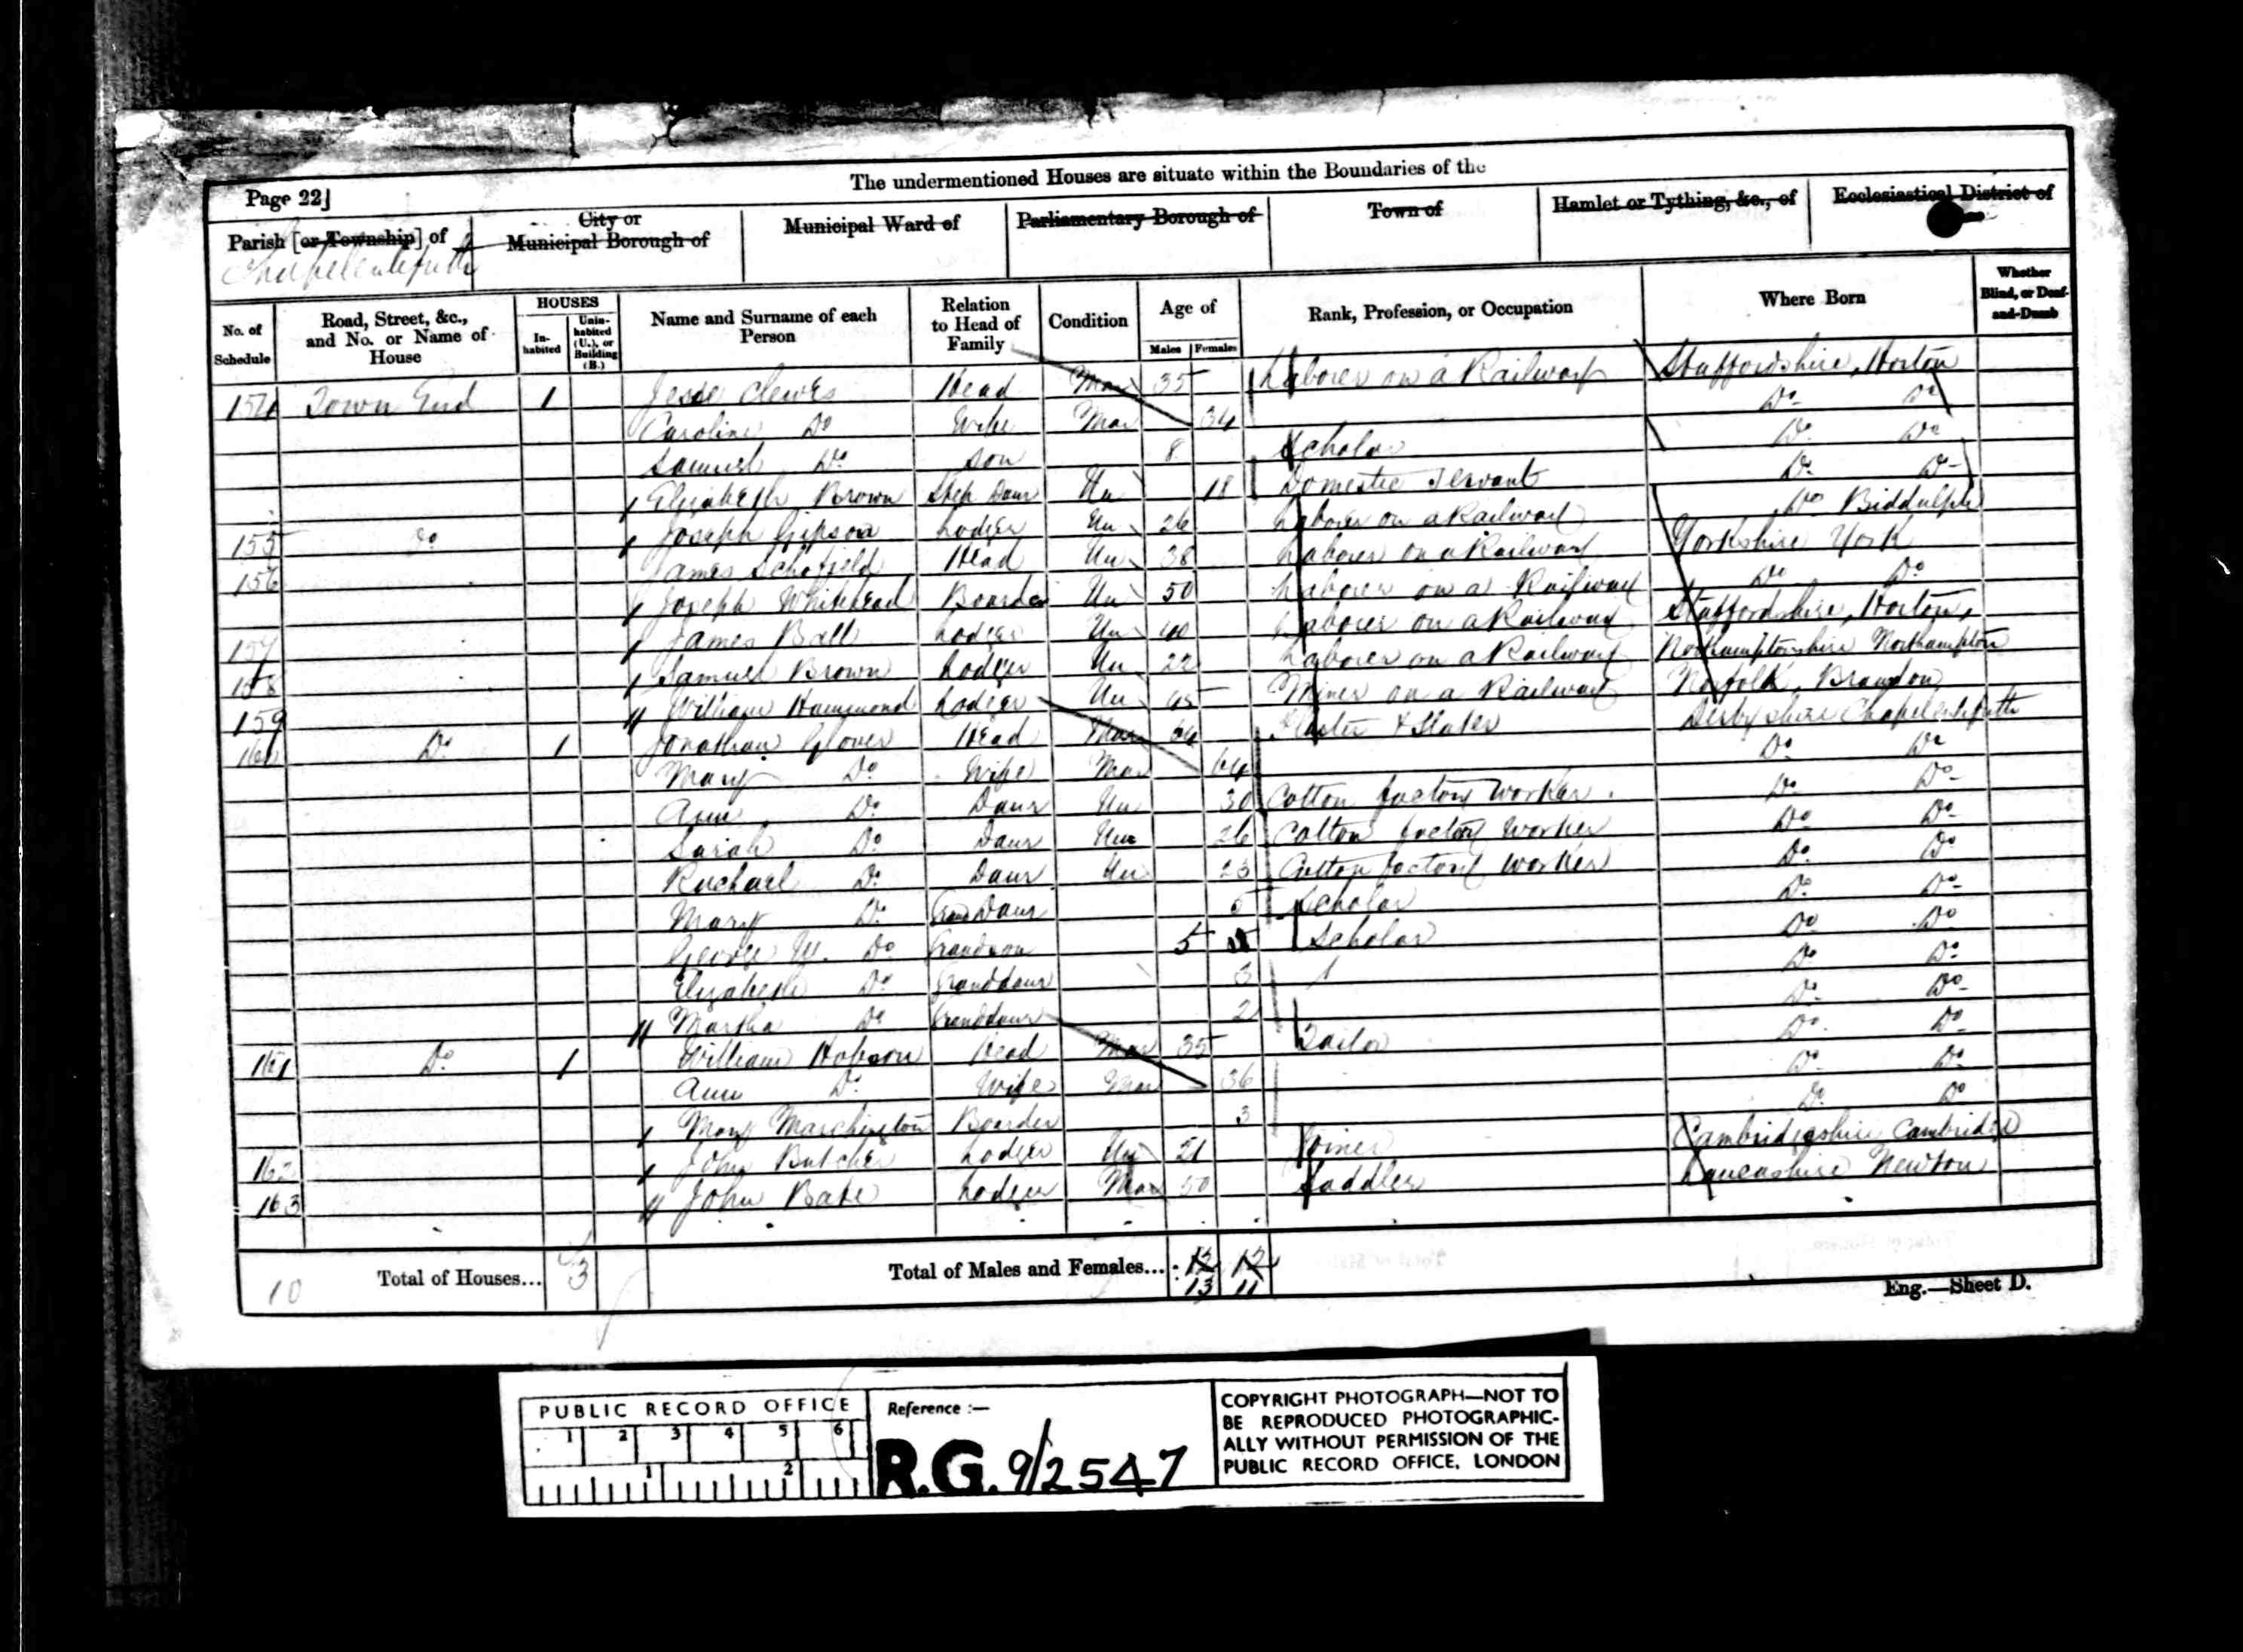 The undermentioned Houses are situate within the Boundaries of the
Page 22]
Parish [or Township] of
Chapelenlefrith
City or
Municipal Borough of
Municipal Ward of
Parliamentary Borough of
Town of
Hamlet or Tything, &c., of
Ecclesiastical District of
No. of Schedule
Road, Street, &c., and No. or Name of House
HOUSES
In-habited
Unin-habited (U.), or Building (B.)
Name and Surname of each Person
Relation to Head of Family
Condition
Age of
Males
Females
Rank, Profession, or Occupation
Where Born
Whether Blind, or Deaf-and-Dumb
154 Town End 1 Jesse Clewes Head Mar 35 Laborer on a Railway Staffordshire, Horton
Caroline Do Wife Mar 34 Do Do
Samuel Do Son 8 Scholar Do Do
Elizabeth Brown Step Daur Un 18 Domestic Servant Do Do
155 Do Joseph Gipson Lodger Un 26 Laborer on a Railway Do Biddulph
156 James Schofield Head Un 38 Laborer on a Railway Yorkshire York
Joseph Whitehead Boarder Un 50 Laborer on a Railway Do Do
157 James Ball Lodger Un 40 Laborer on a Railway Staffordshire, Horton
158 Samuel Brown Lodger Un 22 Laborer on a Railway Northamptonshire Northampton
159 William Hammond Lodger Un 45 Miner on a Railway Norfolk, Brandon
160 Do 1 Jonathan Glover Head Mar 64 & Slater Derbyshire Chapelenlefrith
Mary Do Wife Mar 64 Do Do
Ann Do Daur Un 30 Cotton factory worker Do Do
Sarah Do Daur Un 26 Cotton factory worker Do Do
Rachael Do Daur Un 23 Cotton factory worker Do Do
Mary Do Grand Daur 5 Scholar Do Do
George W. Do Grandson 5 Scholar Do Do
Elizabeth Do Granddaur 3 Do Do
Martha Do Granddaur 2 Do Do
161 Do 1 William Hobson Head Mar 35 Tailor Do Do
Ann Do Wife Mar 36 Do Do
Mary Marchington Boarder 3 Do Do
162 John Butcher Lodger Un 21 Joiner Cambridgeshire Cambridge
163 John Bate Lodger Mar 50 Saddler Lancashire Newton
10 Total of Houses... 3 Total of Males and Females... 12 12
13 11
Eng.—Sheet D.
PUBLIC RECORD OFFICE
1 2 3 4 5 6
1 2
Reference :—
R.G. 9/2547
COPYRIGHT PHOTOGRAPH—NOT TO
BE REPRODUCED PHOTOGRAPHIC-
ALLY WITHOUT PERMISSION OF THE
PUBLIC RECORD OFFICE, LONDON